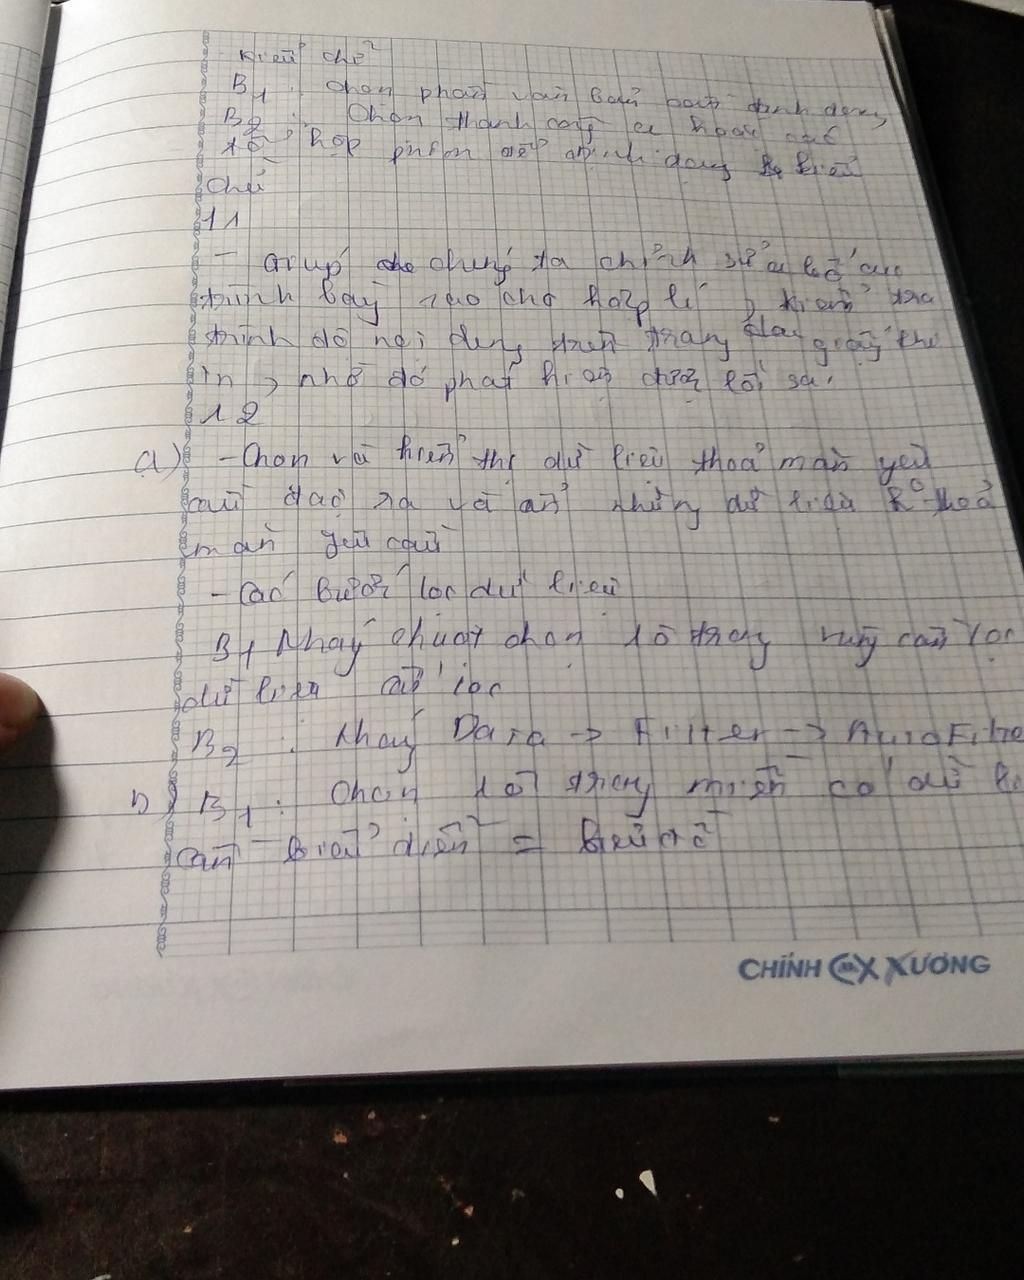 Kiểu chữ
B1: chọn phần văn bản
B2: Chọn thanh công cụ hoặc các
tổ hợp phím để định dạng kiểu
chữ
11
- Giúp cho chúng ta chỉnh sửa
trình bày sao cho hợp lí, kiểm tra
nội dung trên trang giấy khi
in, nhờ đó phát hiện được lỗi sai
12
a) - Chọn và hiển thị dữ liệu thoả mãn yêu
cầu đặt ra và ẩn những dữ liệu K° thoả
mãn yêu cầu
- Các bước lọc dữ liệu
B1 Nháy chuột chọn 1 ô trong vùng cần lọc
dữ liệu cần lọc
B2: Nháy Data → Filter → AutoFilte
b) B1: Chọn 1 ô trong miền có dữ li
cần biểu diễn = biểu đồ
CHÍNH XƯƠNG